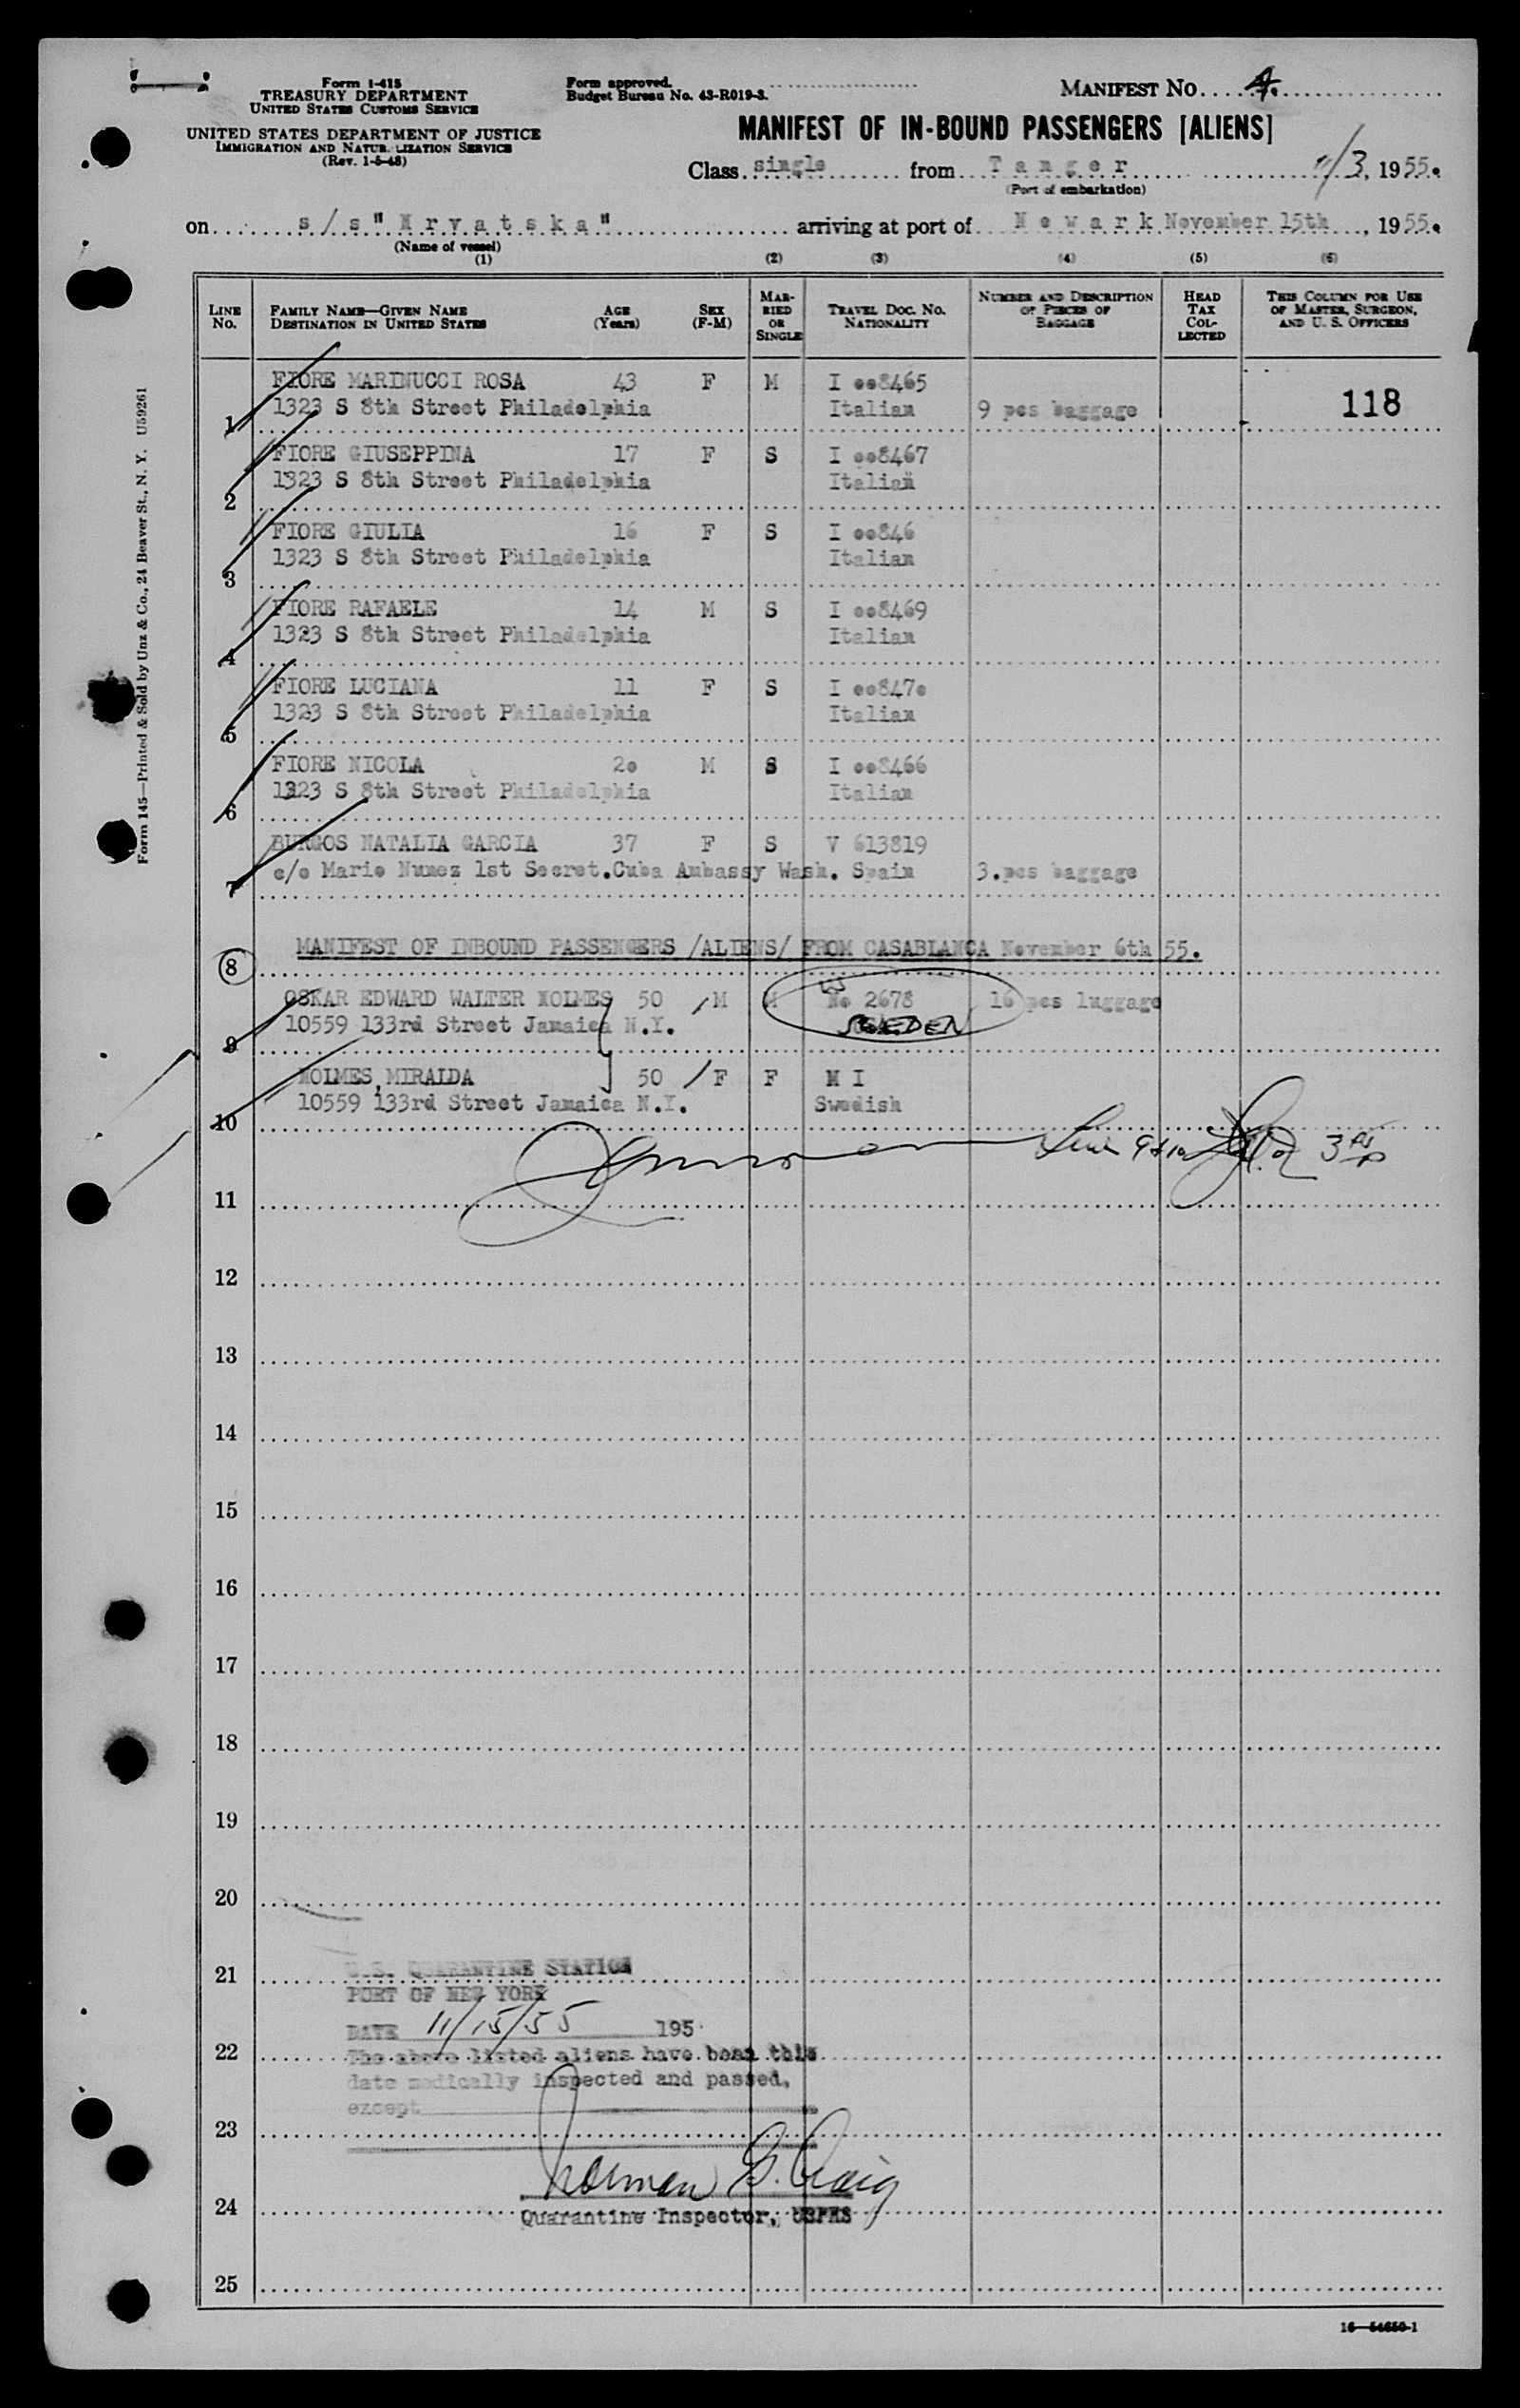 Form I-415
TREASURY DEPARTMENT
UNITED STATES CUSTOMS SERVICE
UNITED STATES DEPARTMENT OF JUSTICE
IMMIGRATION AND NATUR LIZATION SERVICE
(Rev. 1-5-48)
Form approved.
Budget Bureau No. 43-R019-3.
MANIFEST NO. 4.
MANIFEST OF IN-BOUND PASSENGERS [ALIENS]
Class single from Tanger 11/3, 1955.
(Port of embarkation)
on s/s "Hrvatska" arriving at port of Newark November 15th, 1955.
(Name of vessel)
(1) (2) (3) (4) (5) (6)
LINE No. FAMILY NAME—GIVEN NAME DESTINATION IN UNITED STATES AGE (Years) SEX (F-M) MARRIED OR SINGLE TRAVEL DOC. NO. NATIONALITY NUMBER AND DESCRIPTION OF PIECES OF BAGGAGE HEAD TAX COLLECTED THIS COLUMN FOR USE OF MASTER, SURGEON, AND U. S. OFFICERS
FIORE MARINUCCI ROSA 43 F M I oo8465
1 1323 S 8th Street Philadelphia Italian 9 pcs baggage 118
FIORE GIUSEPPINA 17 F S I oo8467
2 1323 S 8th Street Philadelphia Italian
FIORE GIULIA 16 F S I oo846
3 1323 S 8th Street Philadelphia Italian
FIORE RAFAELE 14 M S I oo8469
4 1323 S 8th Street Philadelphia Italian
FIORE LUCIANA 11 F S I oo847o
5 1323 S 8th Street Philadelphia Italian
FIORE NICOLA 2o M S I oo8466
6 1323 S 8th Street Philadelphia Italian
BURGOS NATALIA GARCIA 37 F S V 613819
7 c/o Mario Nunez 1st Secret.Cuba Ambassy Wash. Spain 3.pcs baggage
8 MANIFEST OF INBOUND PASSENGERS /ALIENS/ FROM CASABLANCA November 6th 55.
OSKAR EDWARD WALTER HOLMES 50 M M No 2678 16 pcs luggage
9 10559 133rd Street Jamaica N.Y. SWEDEN
HOLMES MIRALDA 50 F F M I
10 10559 133rd Street Jamaica N.Y. Swedish
11
12
13
14
15
16
17
18
19
20
21 U.S. QUARANTINE STATION
PORT OF NEW YORK
DATE 11/15/55 195
22 The above listed aliens have been this
date medically inspected and passed,
except
23
Norman G. Craig
24 Quarantine Inspector, USPHS
25
16—54650-1
Form 145—Printed & Sold by Unz & Co., 24 Beaver St., N. Y. U59261